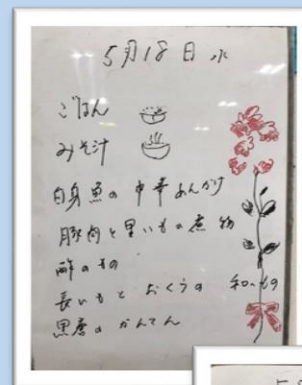 5月18日 水
ごはん
みそ汁
白身魚の中華あんかけ
豚肉と里いもの煮物
酢のもの
長いもと おくらの 和いもの
黒唐のかんてん